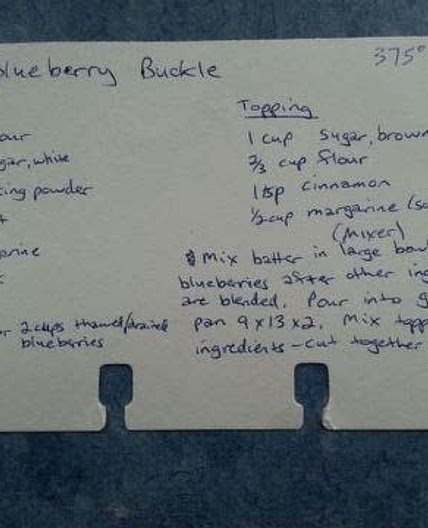 lueberry Buckle
375°
Topping
1 cup sugar, brown
2/3 cup flour
1 tsp cinnamon
1/2 cup margarine (so
(mixer)
our
gar, white
ing powder
arine
Mix batter in large bow
blueberries after other ing
are blended. Pour into g
pan 9x13x2. Mix topp
ingredients - cut together
or 2 cups thawed/drained
blueberries